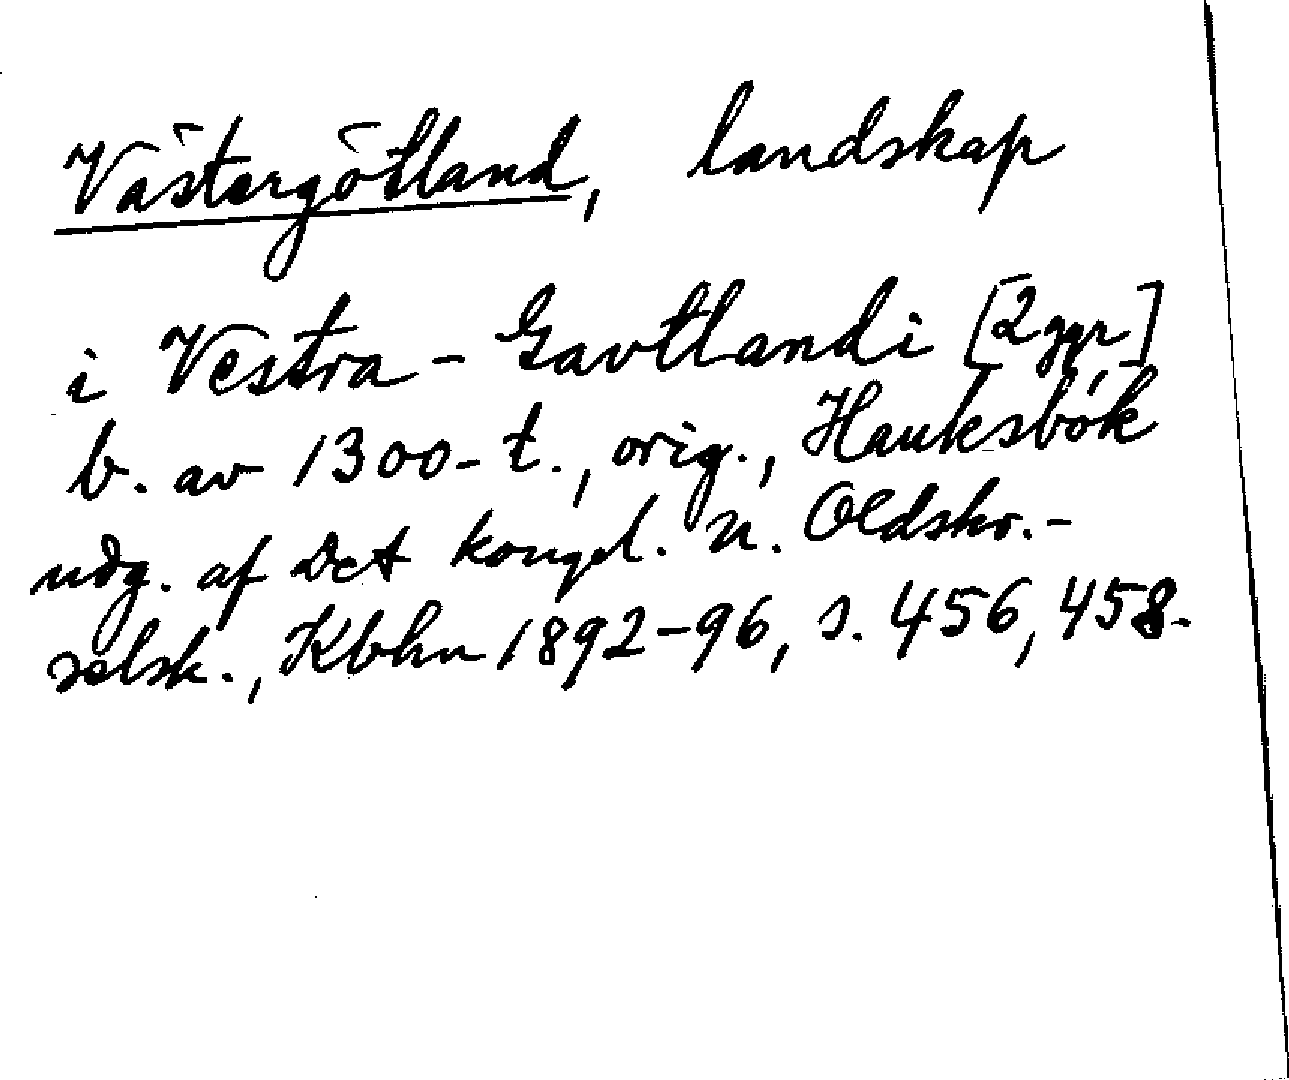 Västergötland, landskap
i Vestra-Gavtlandi [2 ggr]
b. av 1300-t., orig., Hauksbók
udg. af Det kongel. n. Oldskr.-
selsk., Kbhn 1892-96, s. 456, 458.